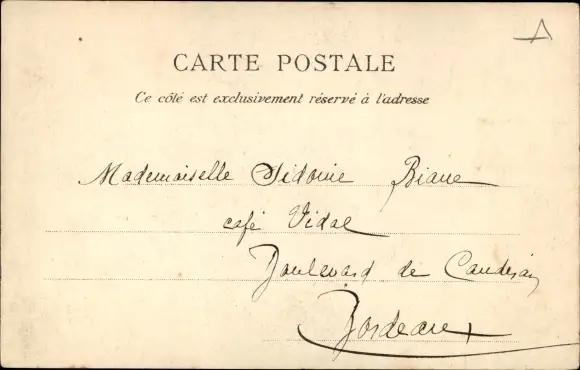 CARTE POSTALE
Ce côté est exclusivement réservé à l'adresse
Mademoiselle Sidonie Biane
café Vidal
Boulevard de Caudéran
Bordeaux